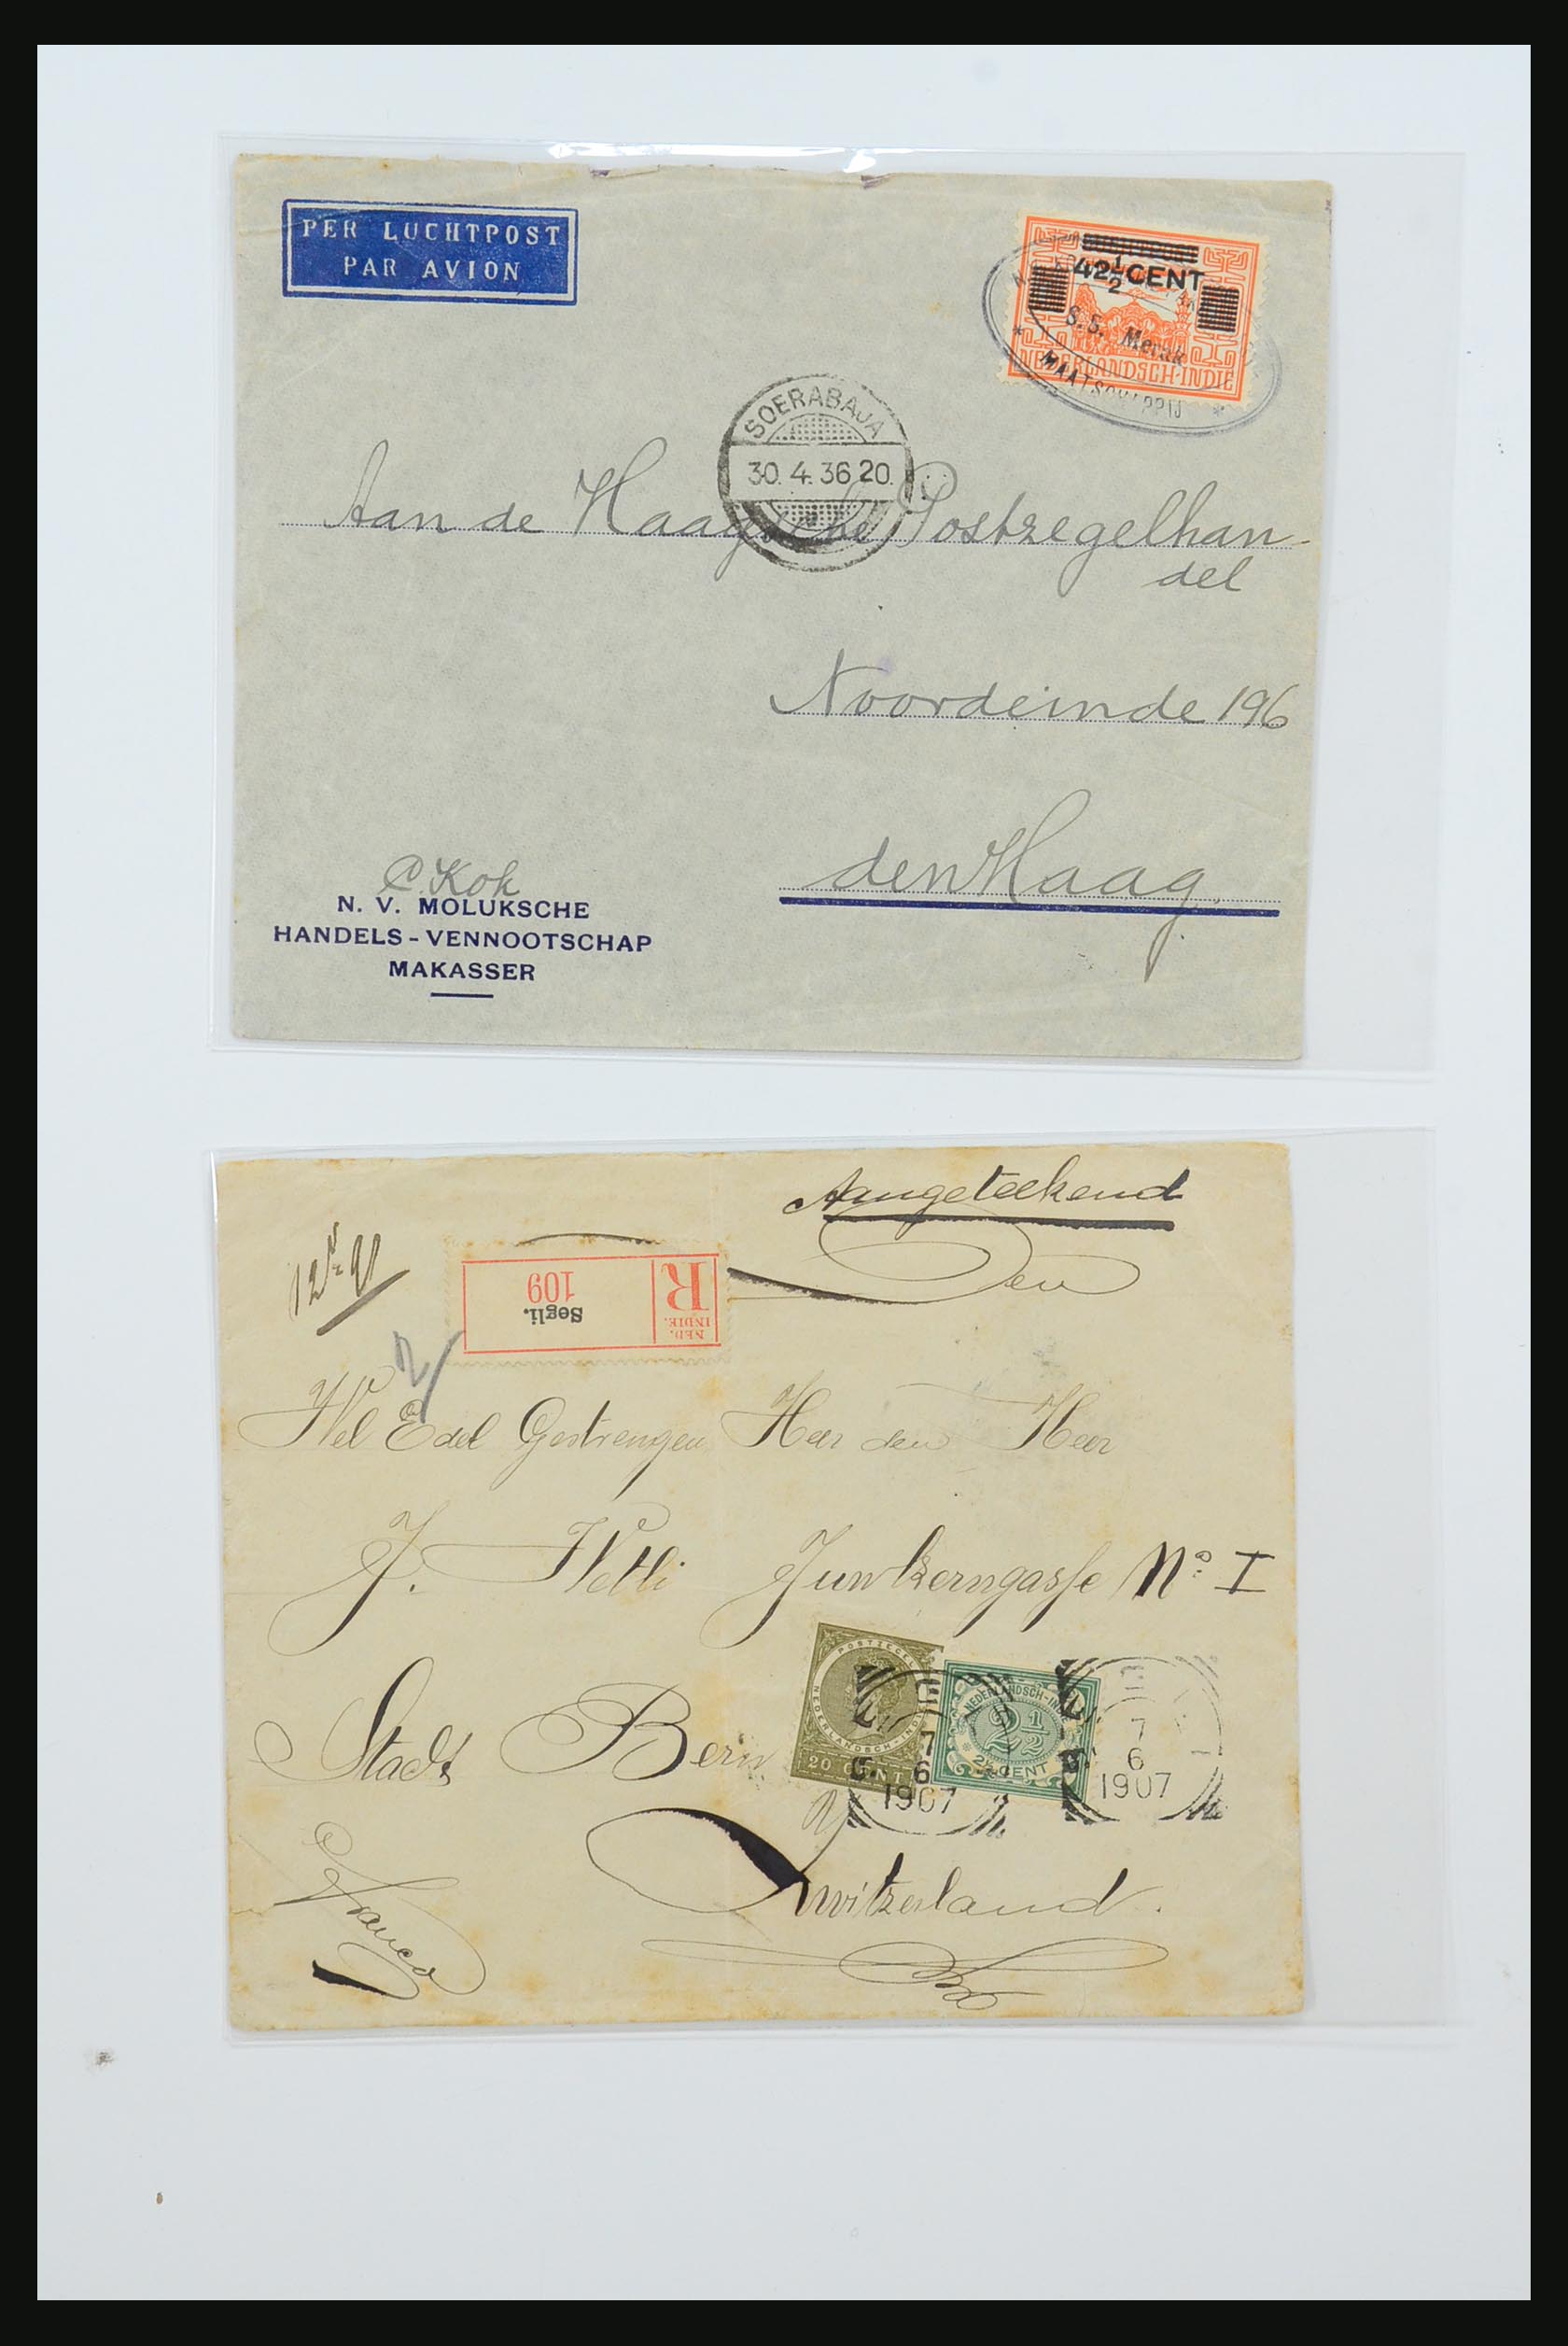 PER LUCHTPOST
PAR AVION
42½ CENT
S.S. Merak
NEDERLANDSCH-INDIE
MAATSCHAPPIJ
SOERABAJA
30.4.36 20.
Aan de Haagsche Postzegelhan-
del
Noordeinde 196
den Haag
C. Koh
N. V. MOLUKSCHE
HANDELS-VENNOOTSCHAP
MAKASSER
Aangeteekend
Den
R
NED.
INDIE.
Segli.
109
Wel Edel Gestrengen Heer den Heer
J. Wetli Junkerngasse No. I
Stadt Bern
POSTZEGEL
NEDERLANDSCH-INDIE
20 CENT
NEDERLANDSCH-INDIE
2½
2½ CENT
7
6
1907
7
6
1907
Switzerland.
Franco